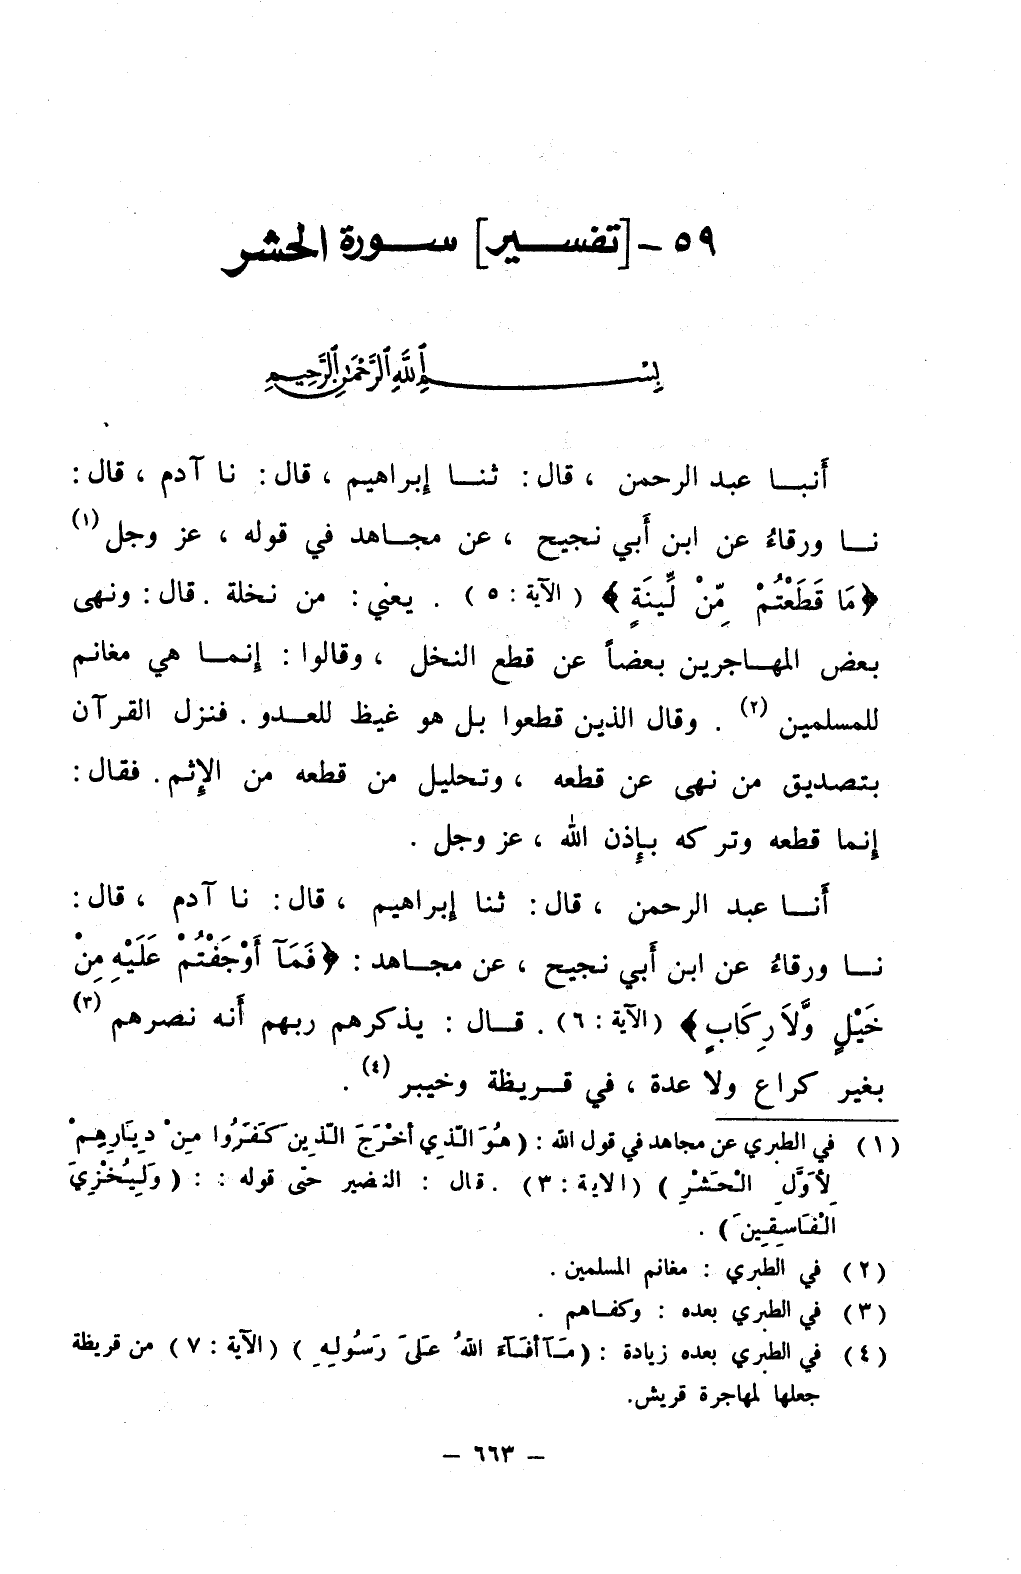 ٥٩ - [تفســير] ســورة الحشر
بِسْــــــمِ اللَّهِ الرَّحْمَٰنِ الرَّحِيمِ
أَنبــا عبد الرحمن ، قال : ثنــا إبراهيم ، قال : نا آدم ، قال :
نــا ورقاءُ عن ابن أَبي نجيح ، عن مجــاهد في قوله ، عز وجل (١)
﴿ مَا قَطَعْتُمْ مِّنْ لِّينَةٍ ﴾ ( الآية : ٥ ) . يعني : من نخلة . قال : ونهى
بعض المهــاجرين بعضاً عن قطع النخل ، وقالوا : إنمــا هي مغانم
للمسلمين (٢) . وقال الذين قطعوا بل هو غيظ للعــدو . فنزل القرآن
بتصديق من نهى عن قطعه ، وتحليل من قطعه من الإِثم . فقال :
إنما قطعه وتركه بإِذن الله ، عز وجل .
أَنــا عبد الرحمن ، قال : ثنا إبراهيم ، قال : نا آدم ، قال :
نــا ورقاءُ عن ابن أَبي نجيح ، عن مجــاهد : ﴿ فَمَآ أَوْجَفْتُمْ عَلَيْهِ مِنْ
خَيْلٍ وَّلاَ رِكَابٍ ﴾ (الآية : ٦) . قــال : يذكرهم ربهم أَنه نصرهم (٣)
بغير كراع ولا عدة ، في قــريظة وخيبر (٤) .
(١) في الطبري عن مجاهد في قول الله : ( هُوَ الَّذِي أَخْرَجَ الَّذِينَ كَفَرُوا مِنْ دِيَارِهِمْ
لِأَوَّلِ الْحَشْرِ ) (الاية : ٣) . قال : النضير حتى قوله : : ( وَلِيُخْزِيَ
الْفَاسِقِينَ ) .
(٢) في الطبري : مغانم المسلمين .
(٣) في الطبري بعده : وكفــاهم .
(٤) في الطبري بعده زيادة : ( مَآ أَفَآءَ اللهُ عَلَىَ رَسُولِهِ ) (الآية : ٧) من قريظة
جعلها لمهاجرة قريش.
– ٦٦٣ –